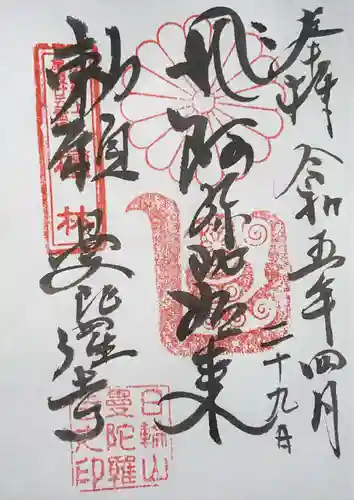 奉拝 令和五年四月
二十九日
阿弥陀如来
勅願 曼陀羅寺
日輪山
曼陀羅
寺之印